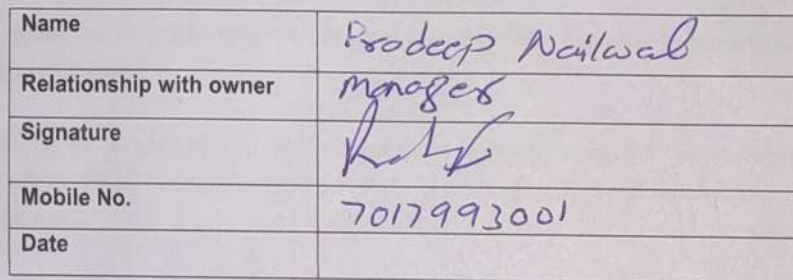 Name Pradeep Nailwal
Relationship with owner manager
Signature
Mobile No. 7017993001
Date